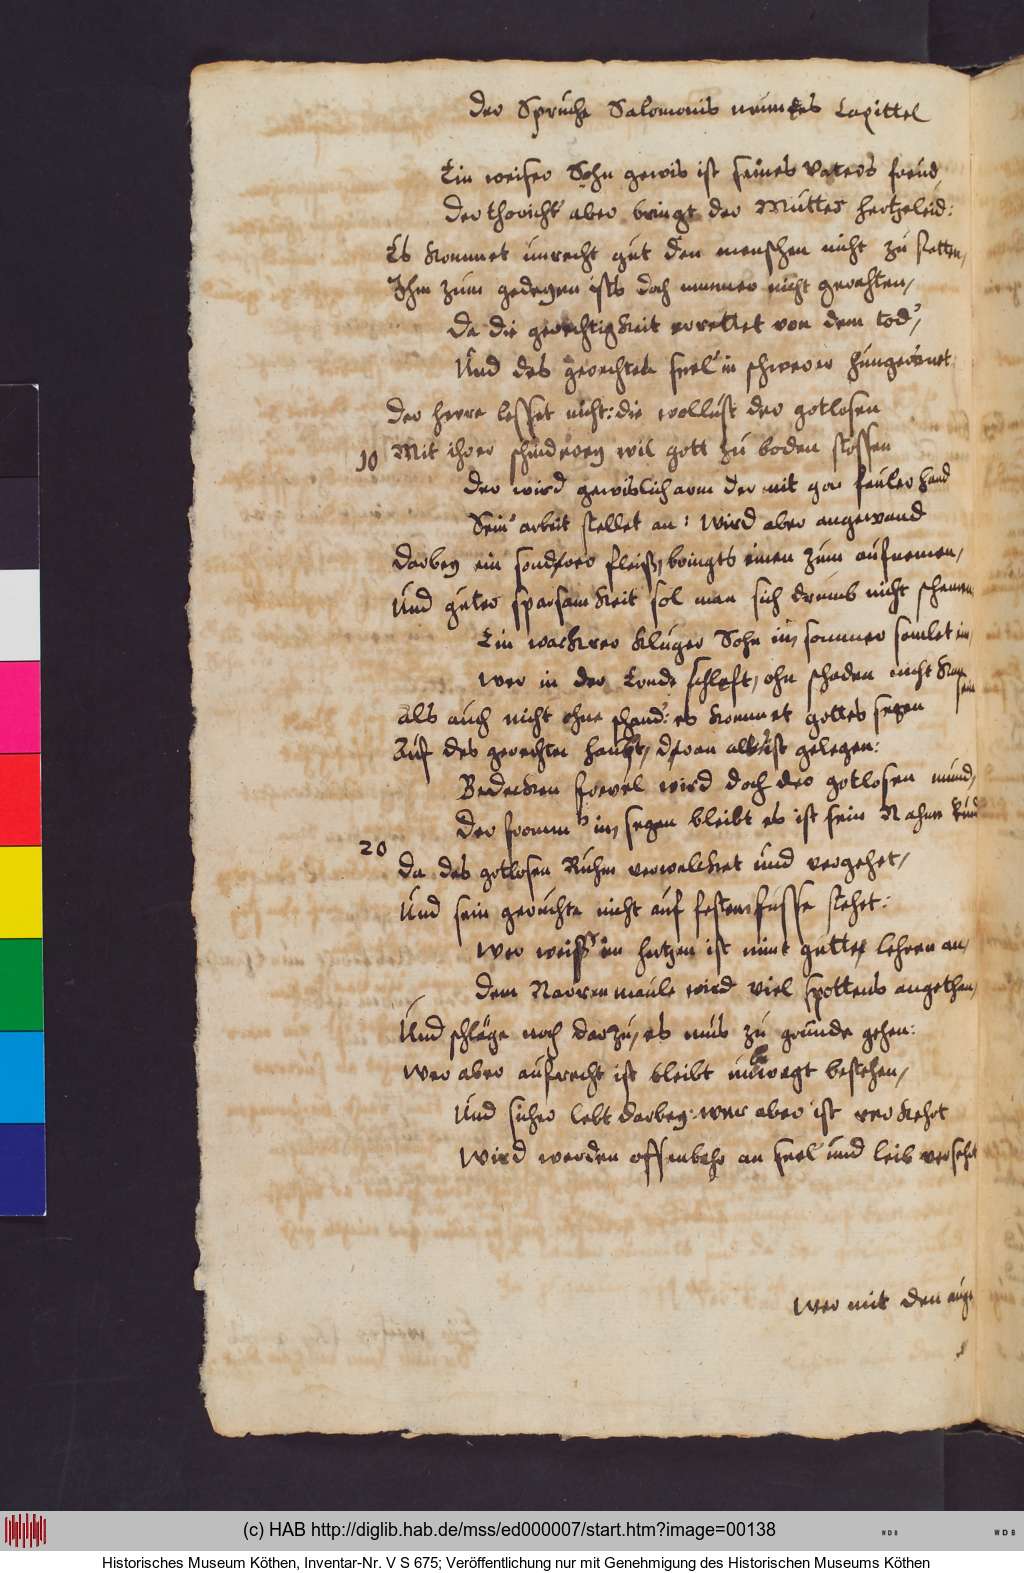 Der Spruche Salomonis neuntes Capittel
Ein weiser Sohn gewis ist seines Vaters freud,
Der thoricht aber bringt der Mutter hertzeleid:
Es kommet unrecht gut den menschen nicht zu statten,
Ihm zum gedeyen ists doch nimmer nicht gerahten,
Da die gerechtigkeit errettet von dem tod,
Und des gerechten seel in schwerer hungersnot
Der herre lesset nicht: die wollust der gotlosen
10 Mit ihrer schinderey wil gott zu boden stossen
Der wird gewislich arm der mit gar fauler hand
Sein arbeit stellet an: Wird aber angewand
Darbey ein sondrer fleiß, bringts einen zum aufnemen,
Und guter sparsamkeit sol man sich drumb nicht schemen
Ein wackrer kluger Sohn im sommer samlet ein,
Wer in der Ernde schleft, ohn schaden nicht kan sein
Als auch nicht ohne schand: es kommet gottes segen
Auf des gerechten haupt, dran alles ist gelegen:
Bedecken frevel wird doch der gotlosen mund,
Der fromm' im segen bleibt es ist sein Nahme kund
20 Da des gotlosen Ruhm verwelcket und vergehet,
Und sein geruchte nicht auf festem fusse stehet:
Wer weiß im hertzen ist nimt gutte lehren an,
Dem Narren maule wird viel spottens angethan,
Und schläge noch darzu, es mus zu grunde gehen:
Wer aber aufrecht ist bleibt unbewegt bestehen,
Und sicher lebt darbey: wer aber ist verkehrt
Wird werden offenbahr an seel und leib versehrt
Wer mit den auge
(c) HAB http://diglib.hab.de/mss/ed000007/start.htm?image=00138
WDB
WDB
Historisches Museum Köthen, Inventar-Nr. V S 675; Veröffentlichung nur mit Genehmigung des Historischen Museums Köthen